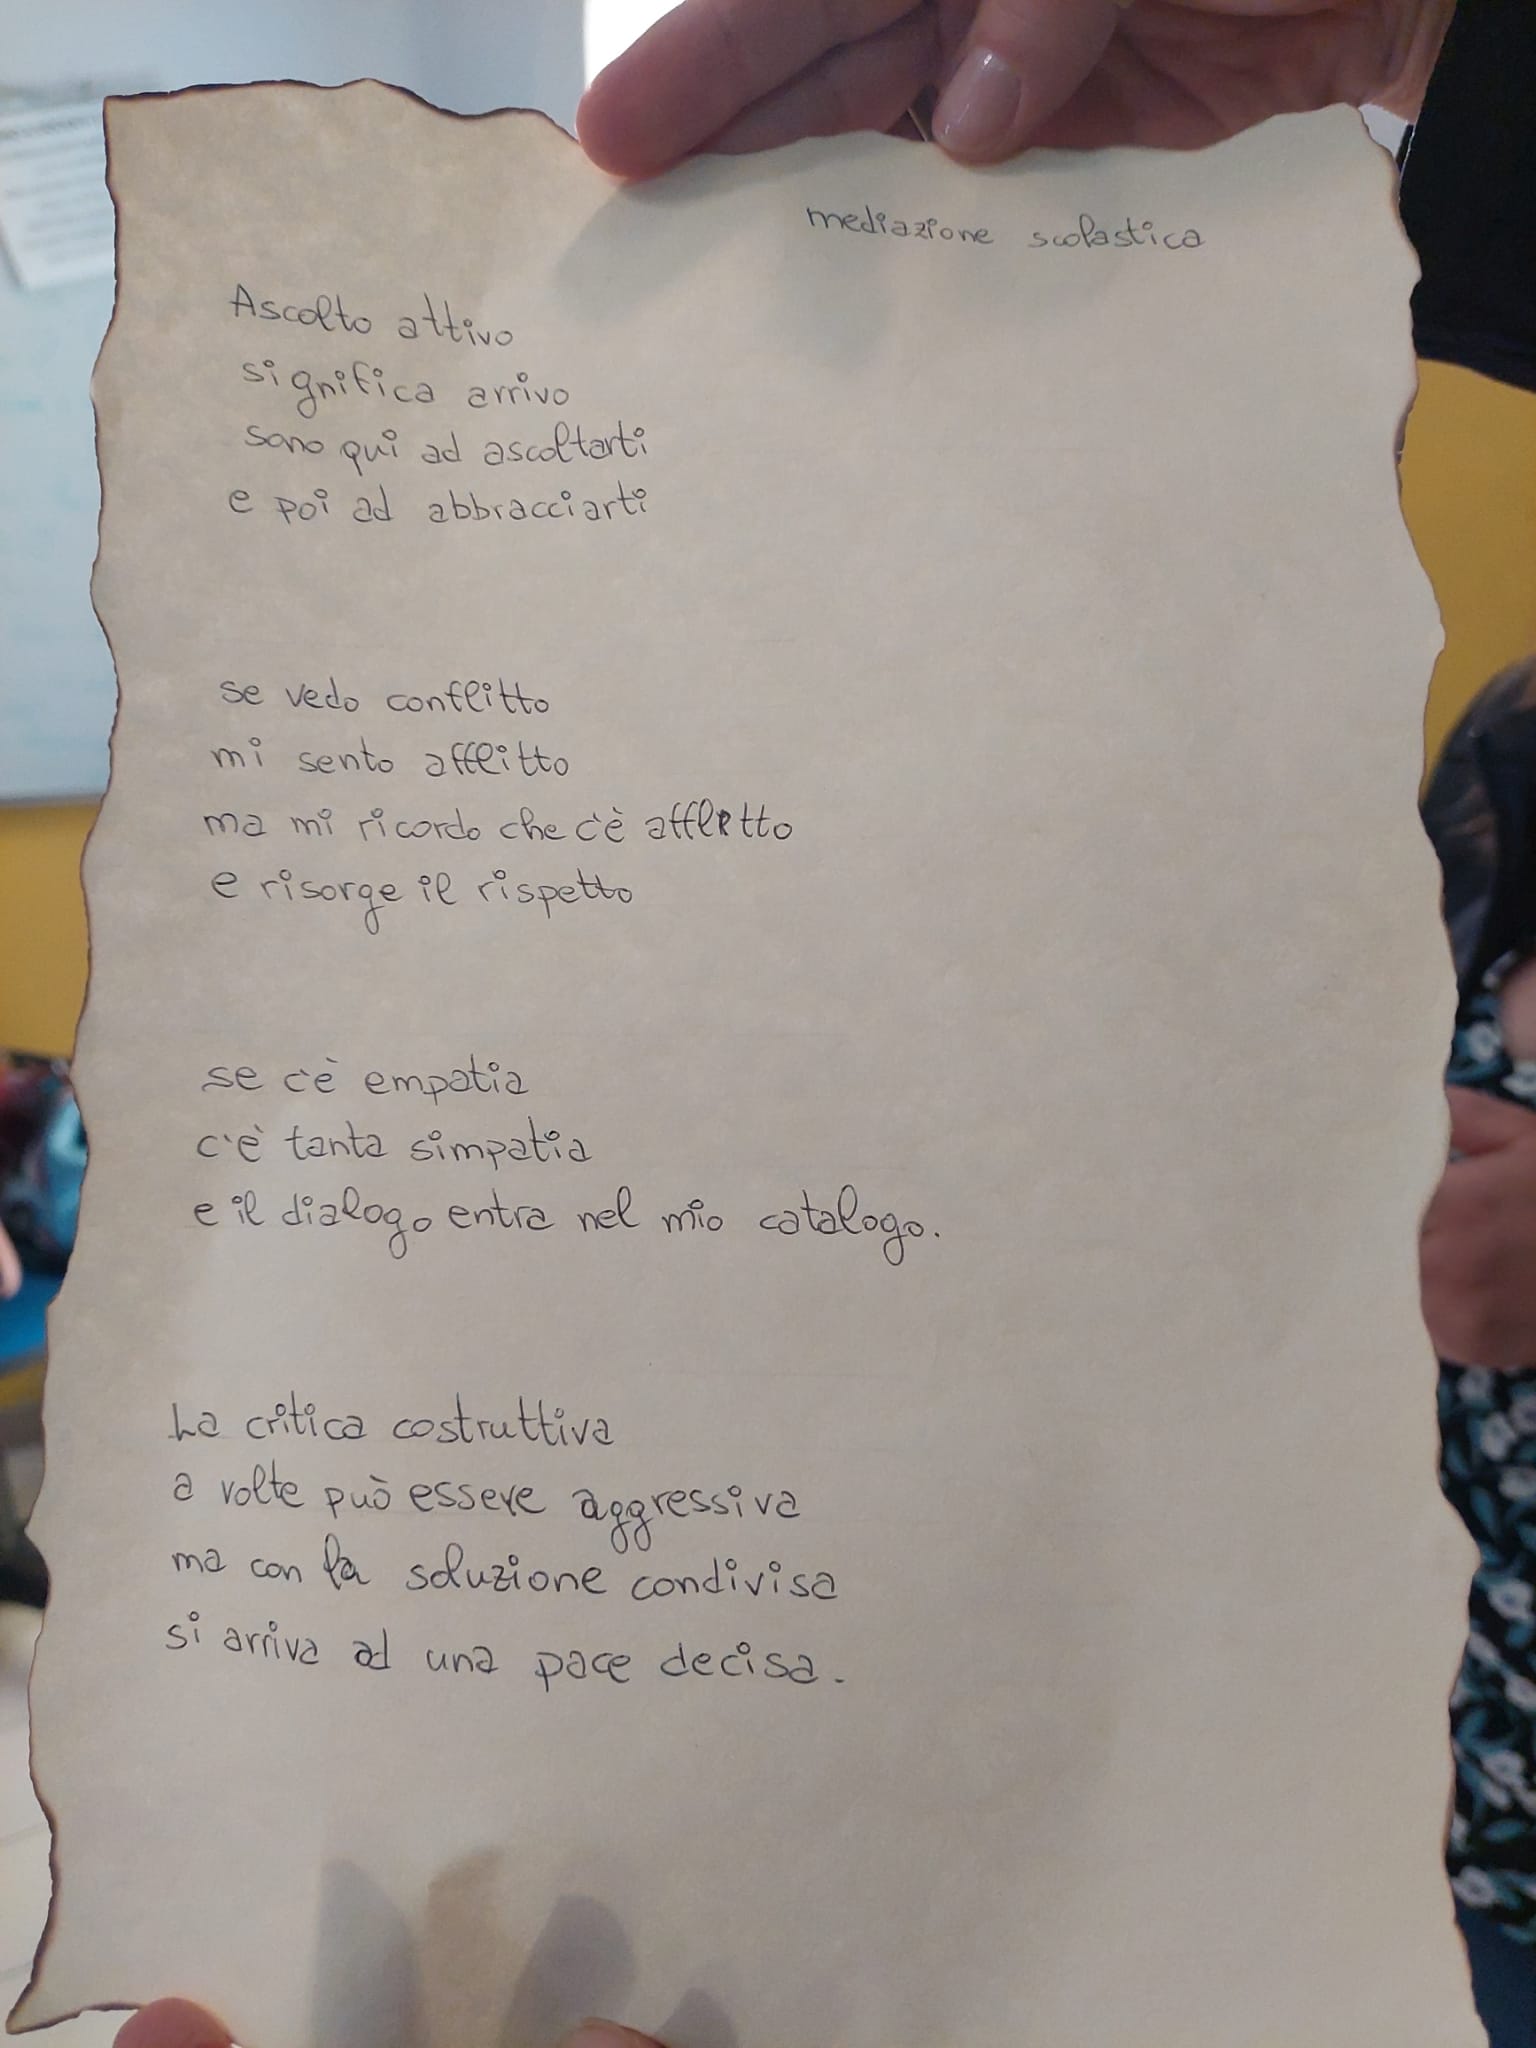 mediazione scolastica
Ascolto attivo
significa arrivo
sono qui ad ascoltarti
e poi ad abbracciarti
se vedo conflitto
mi sento afflitto
ma mi ricordo che c'è
e risorge il rispetto
se c'è empatia
c'è tanta simpatia
e il dialogo entra nel mio catalogo.
La critica costruttiva
a volte può essere aggressiva
ma con la soluzione condivisa
si arriva ad una pace decisa.